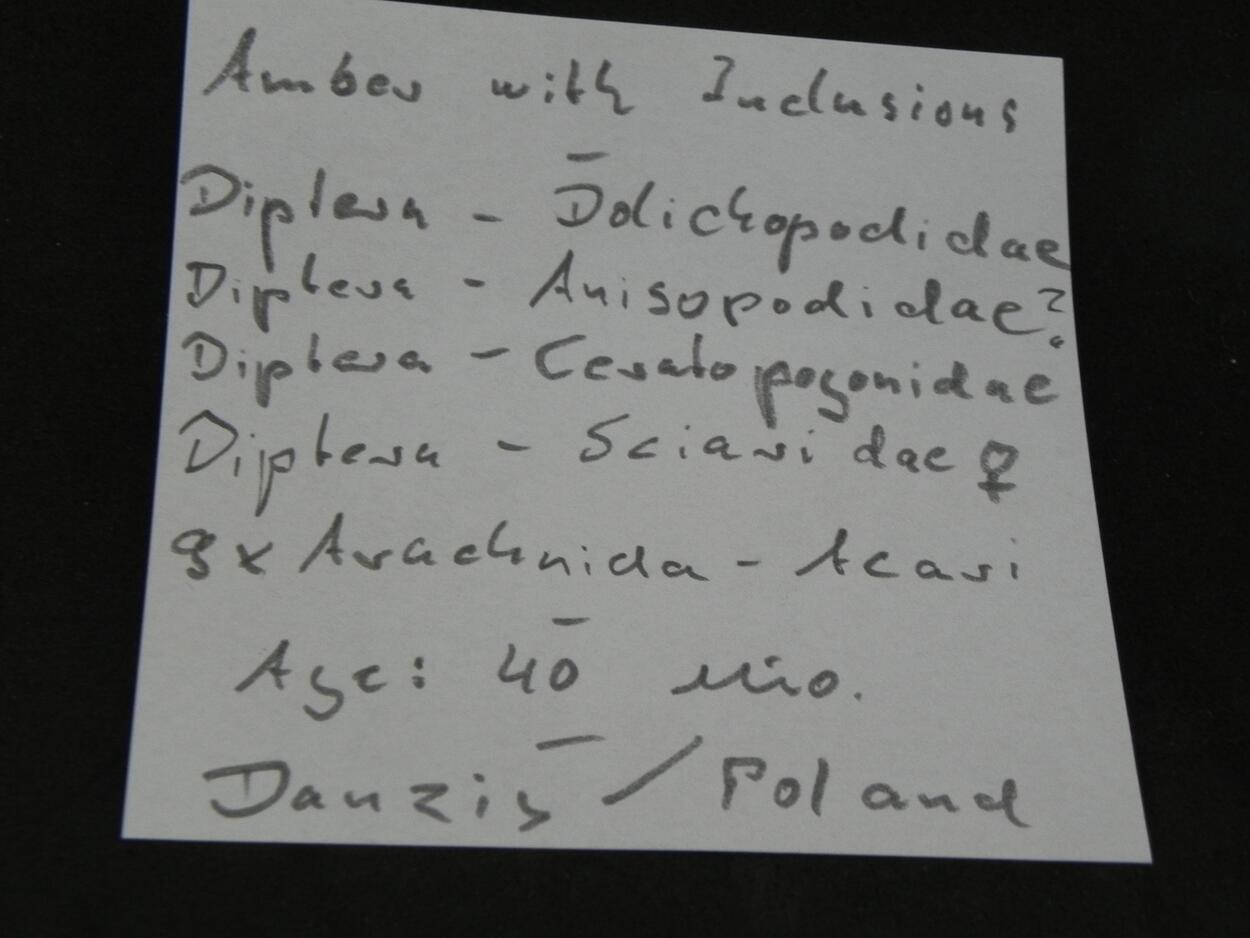 Amber with Inclusions
–
Diptera - Dolichopodidae
Diptera - Anisopodidae?
Diptera - Ceratopogonidae
Diptera - Sciaridae ♀
9x Arachnida - Acari
–
Age: 40 Mio.
–
Danzig / Poland